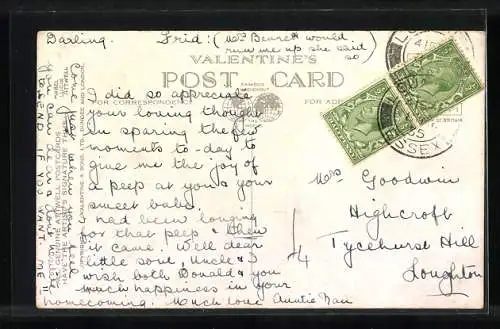 Darling. Frid: (Mrs Bennett would
run me up she said
so
VALENTINE'S
POST CARD
FOR CORRESPONDENCE
FOR ADD
I did so appreciate
your loving thought
in sparing the few
moments to-day to
give me the joy of
a peep at yours your
sweet babe. I
had been longing
for that peep & then
it came. Well dear
little soul, Uncle & I
wish both Donald & you
much happiness in your
homecoming. Much love Auntie Nan
Come just when you feel
you can dear & don't
SEND IF YOU WANT ME!!
HAVE THE ARTIST'S SIGNATURE
ESSEX
Mrs Goodwin
Highcroft
Tycehurst Hill
Loughton